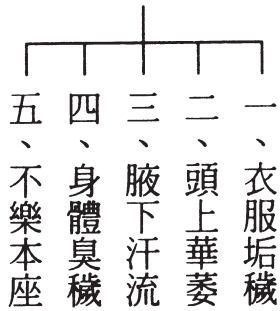 一、衣服垢穢
二、頭上華萎
三、腋下汗流
四、身體臭穢
五、不樂本座